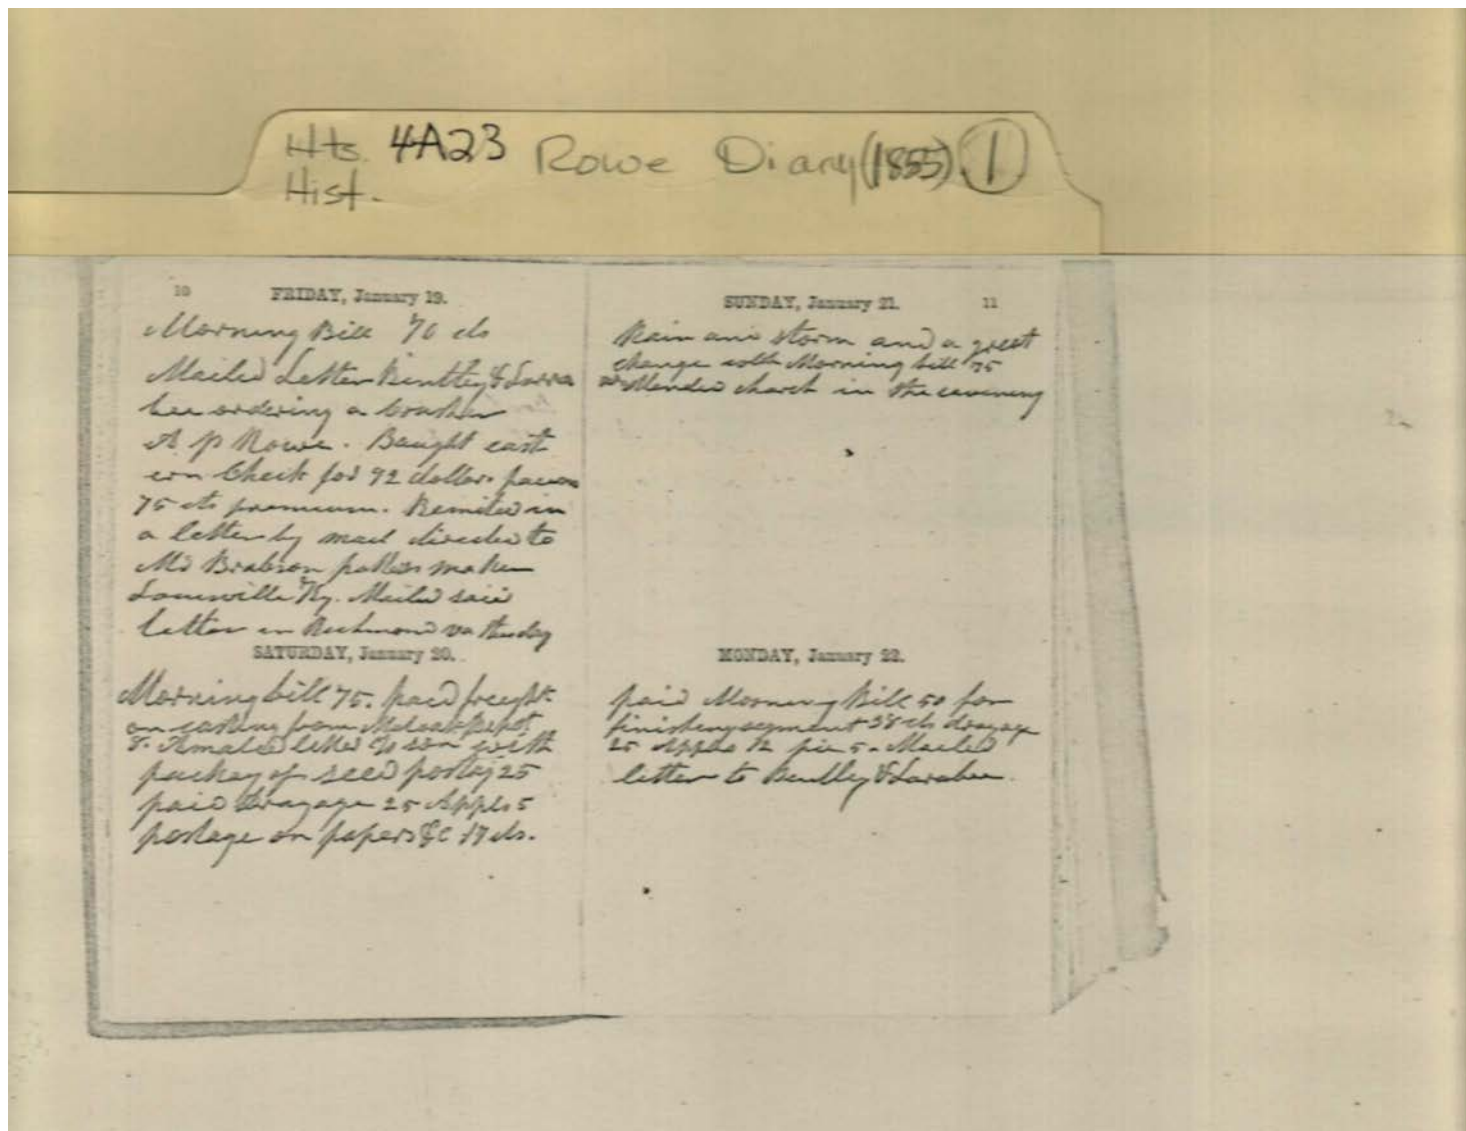 Hts. 4A23 Rowe Diary (1855) 1
Hist.
10
FRIDAY, January 19.
Morning Bill 70 cts
Mailed Letter Bentley & Larra
bee ordering a
A P Rowe. Baught east
ern Check for 92 dollars
75 cts premium. Remited in
a letter by mail directed to
Mr Brabson maker
Louisville Ky. Mailed said
letter in Richmond va
SATURDAY, January 20.
Morning bill 75. paid freight
on casting from Depot
letter to son with
packag of seed postag 25
paid dragage 25 Apples 5
postage on papers &c 17 cts.
SUNDAY, January 21.
11
Rain and storm and a great
change Morning bill 75
attended church in the evening
MONDAY, January 22.
paid Morning Bill 50 for
finishing segment 38 cts dragage
25 Apples 12 pie 5. Mailed
letter to Bentley & Larabee.